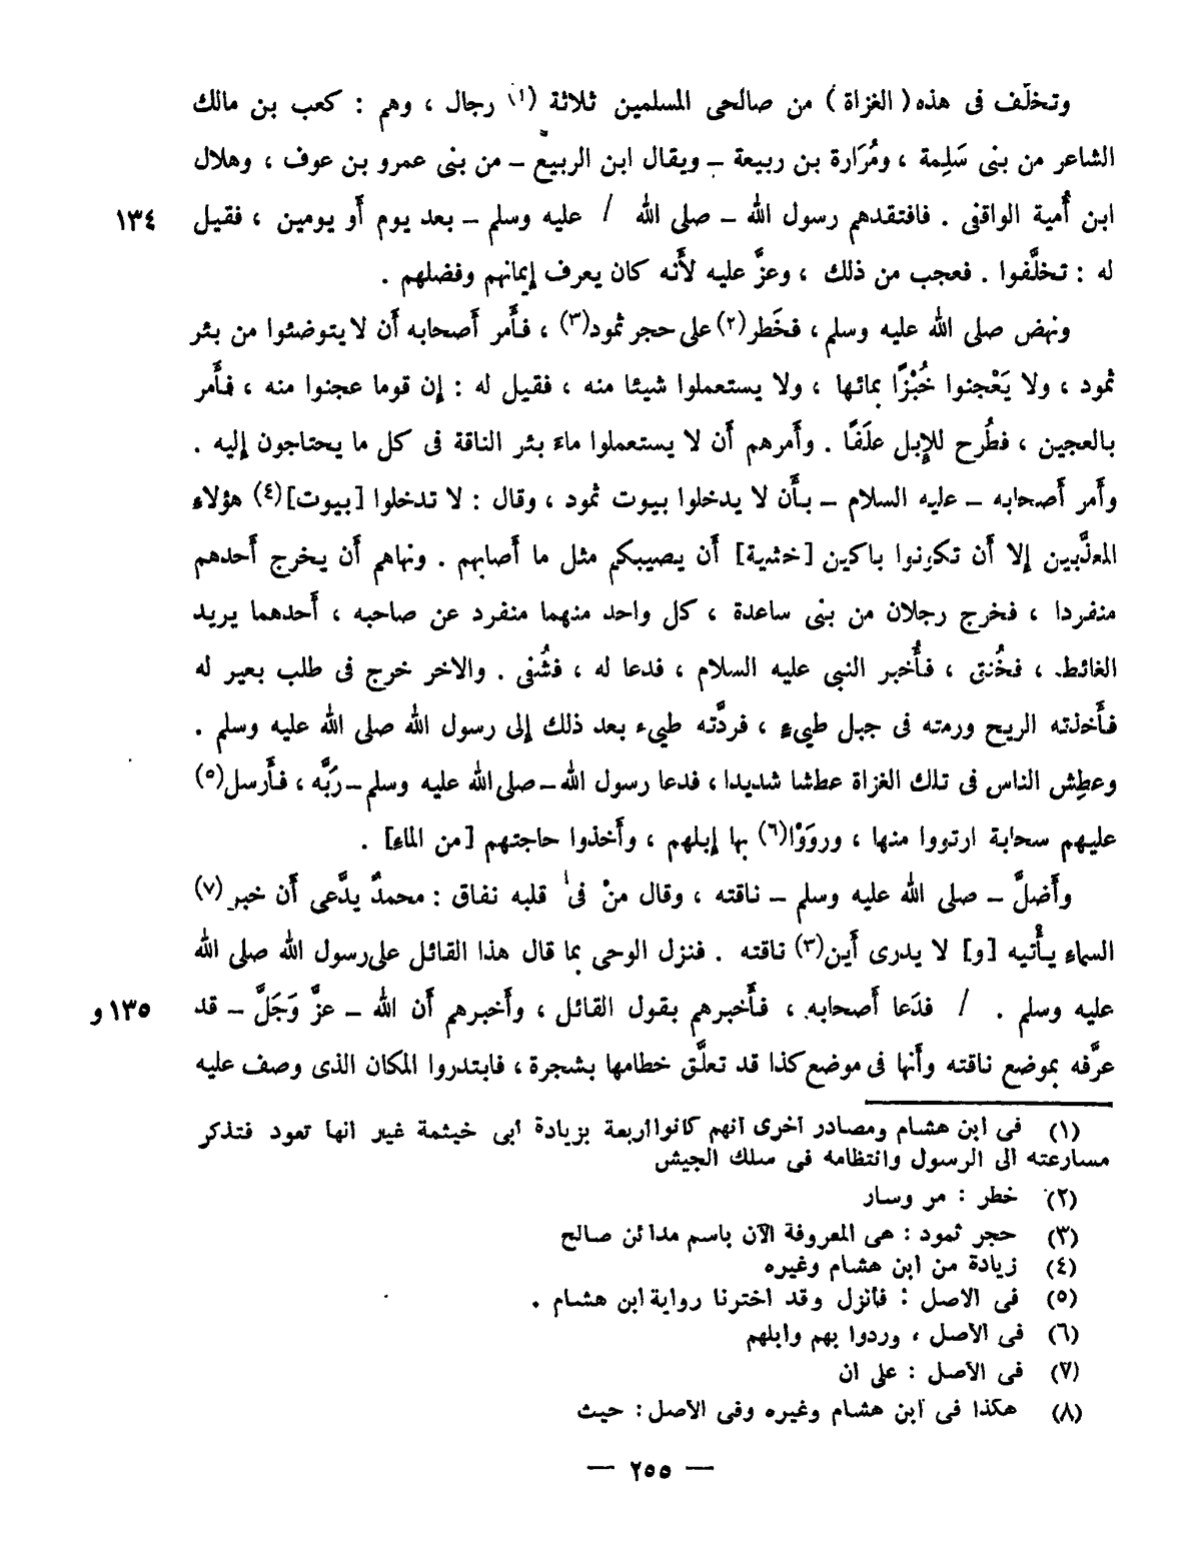 وتخلَّف فى هذه ( الغزاة ) من صالحى المسلمين ثلاثة (١) رجال ، وهم : كعب بن مالك
الشاعر من بنى سَلِمة ، ومُرَارة بن ربيعة – ويقال ابن الربيع – من بنى عمرو بن عوف ، وهلال
ابن أُمية الواقفى . فافتقدهم رسول الله – صلى الله / عليه وسلم – بعد يوم أَو يومين ، فقيل ١٣٤
له : تخلَّفوا . فعجب من ذلك ، وعزَّ عليه لأَنه كان يعرف إيمانهم وفضلهم .
ونهض صلى الله عليه وسلم ، فخَطر(٢) على حجر ثمود(٣) ، فأَمر أَصحابه أَن لا يتوضئوا من بئر
ثمود ، ولا يَعْجنوا خُبْزًا بمائها ، ولا يستعملوا شيئا منه ، فقيل له : إن قوما عجنوا منه ، فأَمر
بالعجين ، فطُرح للإِبل علَفًا . وأَمرهم أَن لا يستعملوا ماءَ بئر الناقة فى كل ما يحتاجون إليه .
وأَمر أَصحابه – عليه السلام – بأَن لا يدخلوا بيوت ثمود ، وقال : لا تدخلوا [بيوت](٤) هؤلاء
المعذَّبين إلا أَن تكونوا باكين [خشية] أَن يصيبكم مثل ما أَصابهم . ونهاهم أَن يخرج أَحدهم
منفردا ، فخرج رجلان من بنى ساعدة ، كل واحد منهما منفرد عن صاحبه ، أَحدهما يريد
الغائط ، فخُنق ، فأُخبر النبى عليه السلام ، فدعا له ، فشُفى . والاخر خرج فى طلب بعير له
فأَخذته الريح ورمته فى جبل طيىءٍ ، فردَّته طيىء بعد ذلك إلى رسول الله صلى الله عليه وسلم .
وعطِش الناس فى تلك الغزاة عطشا شديدا ، فدعا رسول الله – صلى الله عليه وسلم – ربَّه ، فأَرسل(٥)
عليهم سحابة ارتووا منها ، وروَوْا(٦) بها إبلهم ، وأَخذوا حاجتهم [من الماء] .
وأَضلَّ – صلى الله عليه وسلم – ناقته ، وقال منْ فى قلبه نفاق : محمدٌ يدَّعى أَن خبر (٧)
السماء يأْتيه [و] لا يدرى أَين(٣) ناقته . فنزل الوحى بما قال هذا القائل على رسول الله صلى الله
عليه وسلم . / فدَعا أَصحابه ، فأَخبرهم بقول القائل ، وأَخبرهم أَن الله – عزَّ وَجَلَّ – قد ١٣٥ و
عرَّفه بموضع ناقته وأَنها فى موضع كذا قد تعلَّق خطامها بشجرة ، فابتدروا المكان الذى وصف عليه
(١) فى ابن هشام ومصادر أخرى أنهم كانوا أربعة بزيادة أبى خيثمة غير انها تعود فتذكر
مسارعته الى الرسول وانتظامه فى سلك الجيش
(٢) خطر : مر وسار
(٣) حجر ثمود : هى المعروفة الآن باسم مدائن صالح
(٤) زيادة من ابن هشام وغيره
(٥) فى الاصل : فأنزل وقد اخترنا رواية ابن هشام .
(٦) فى الأصل ، وردوا بهم وابلهم
(٧) فى الأصل : على ان
(٨) هكذا فى ابن هشام وغيره وفى الأصل : حيث
— ٢٥٥ —